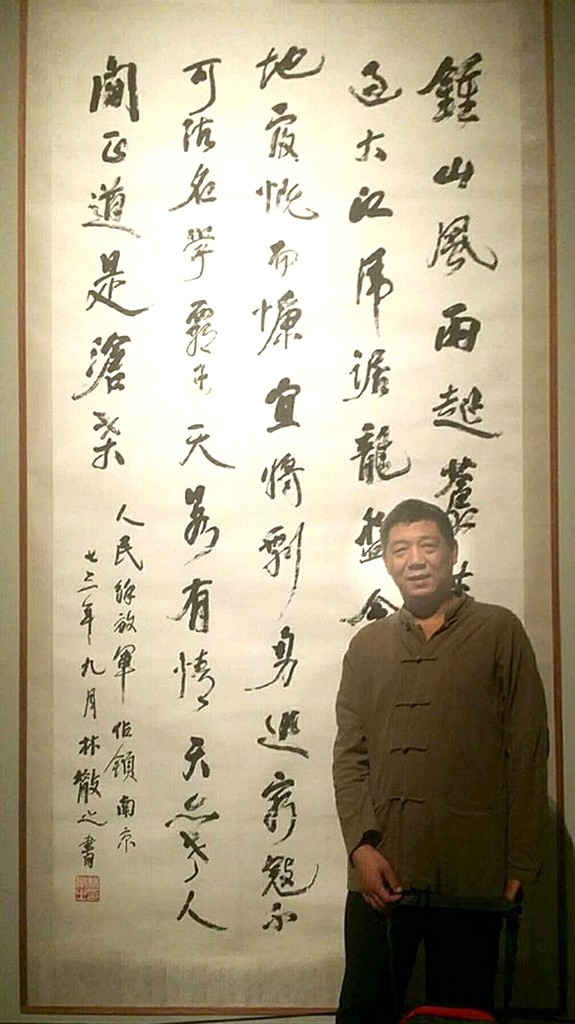 鍾山風雨起蒼
過大江虎踞龍盤今
地覆慨而慷宜將剩勇追窮寇不
可沽名學霸王天若有情天亦老人
間正道是滄桑
人民解放軍佔領南京
七三年九月林散之書